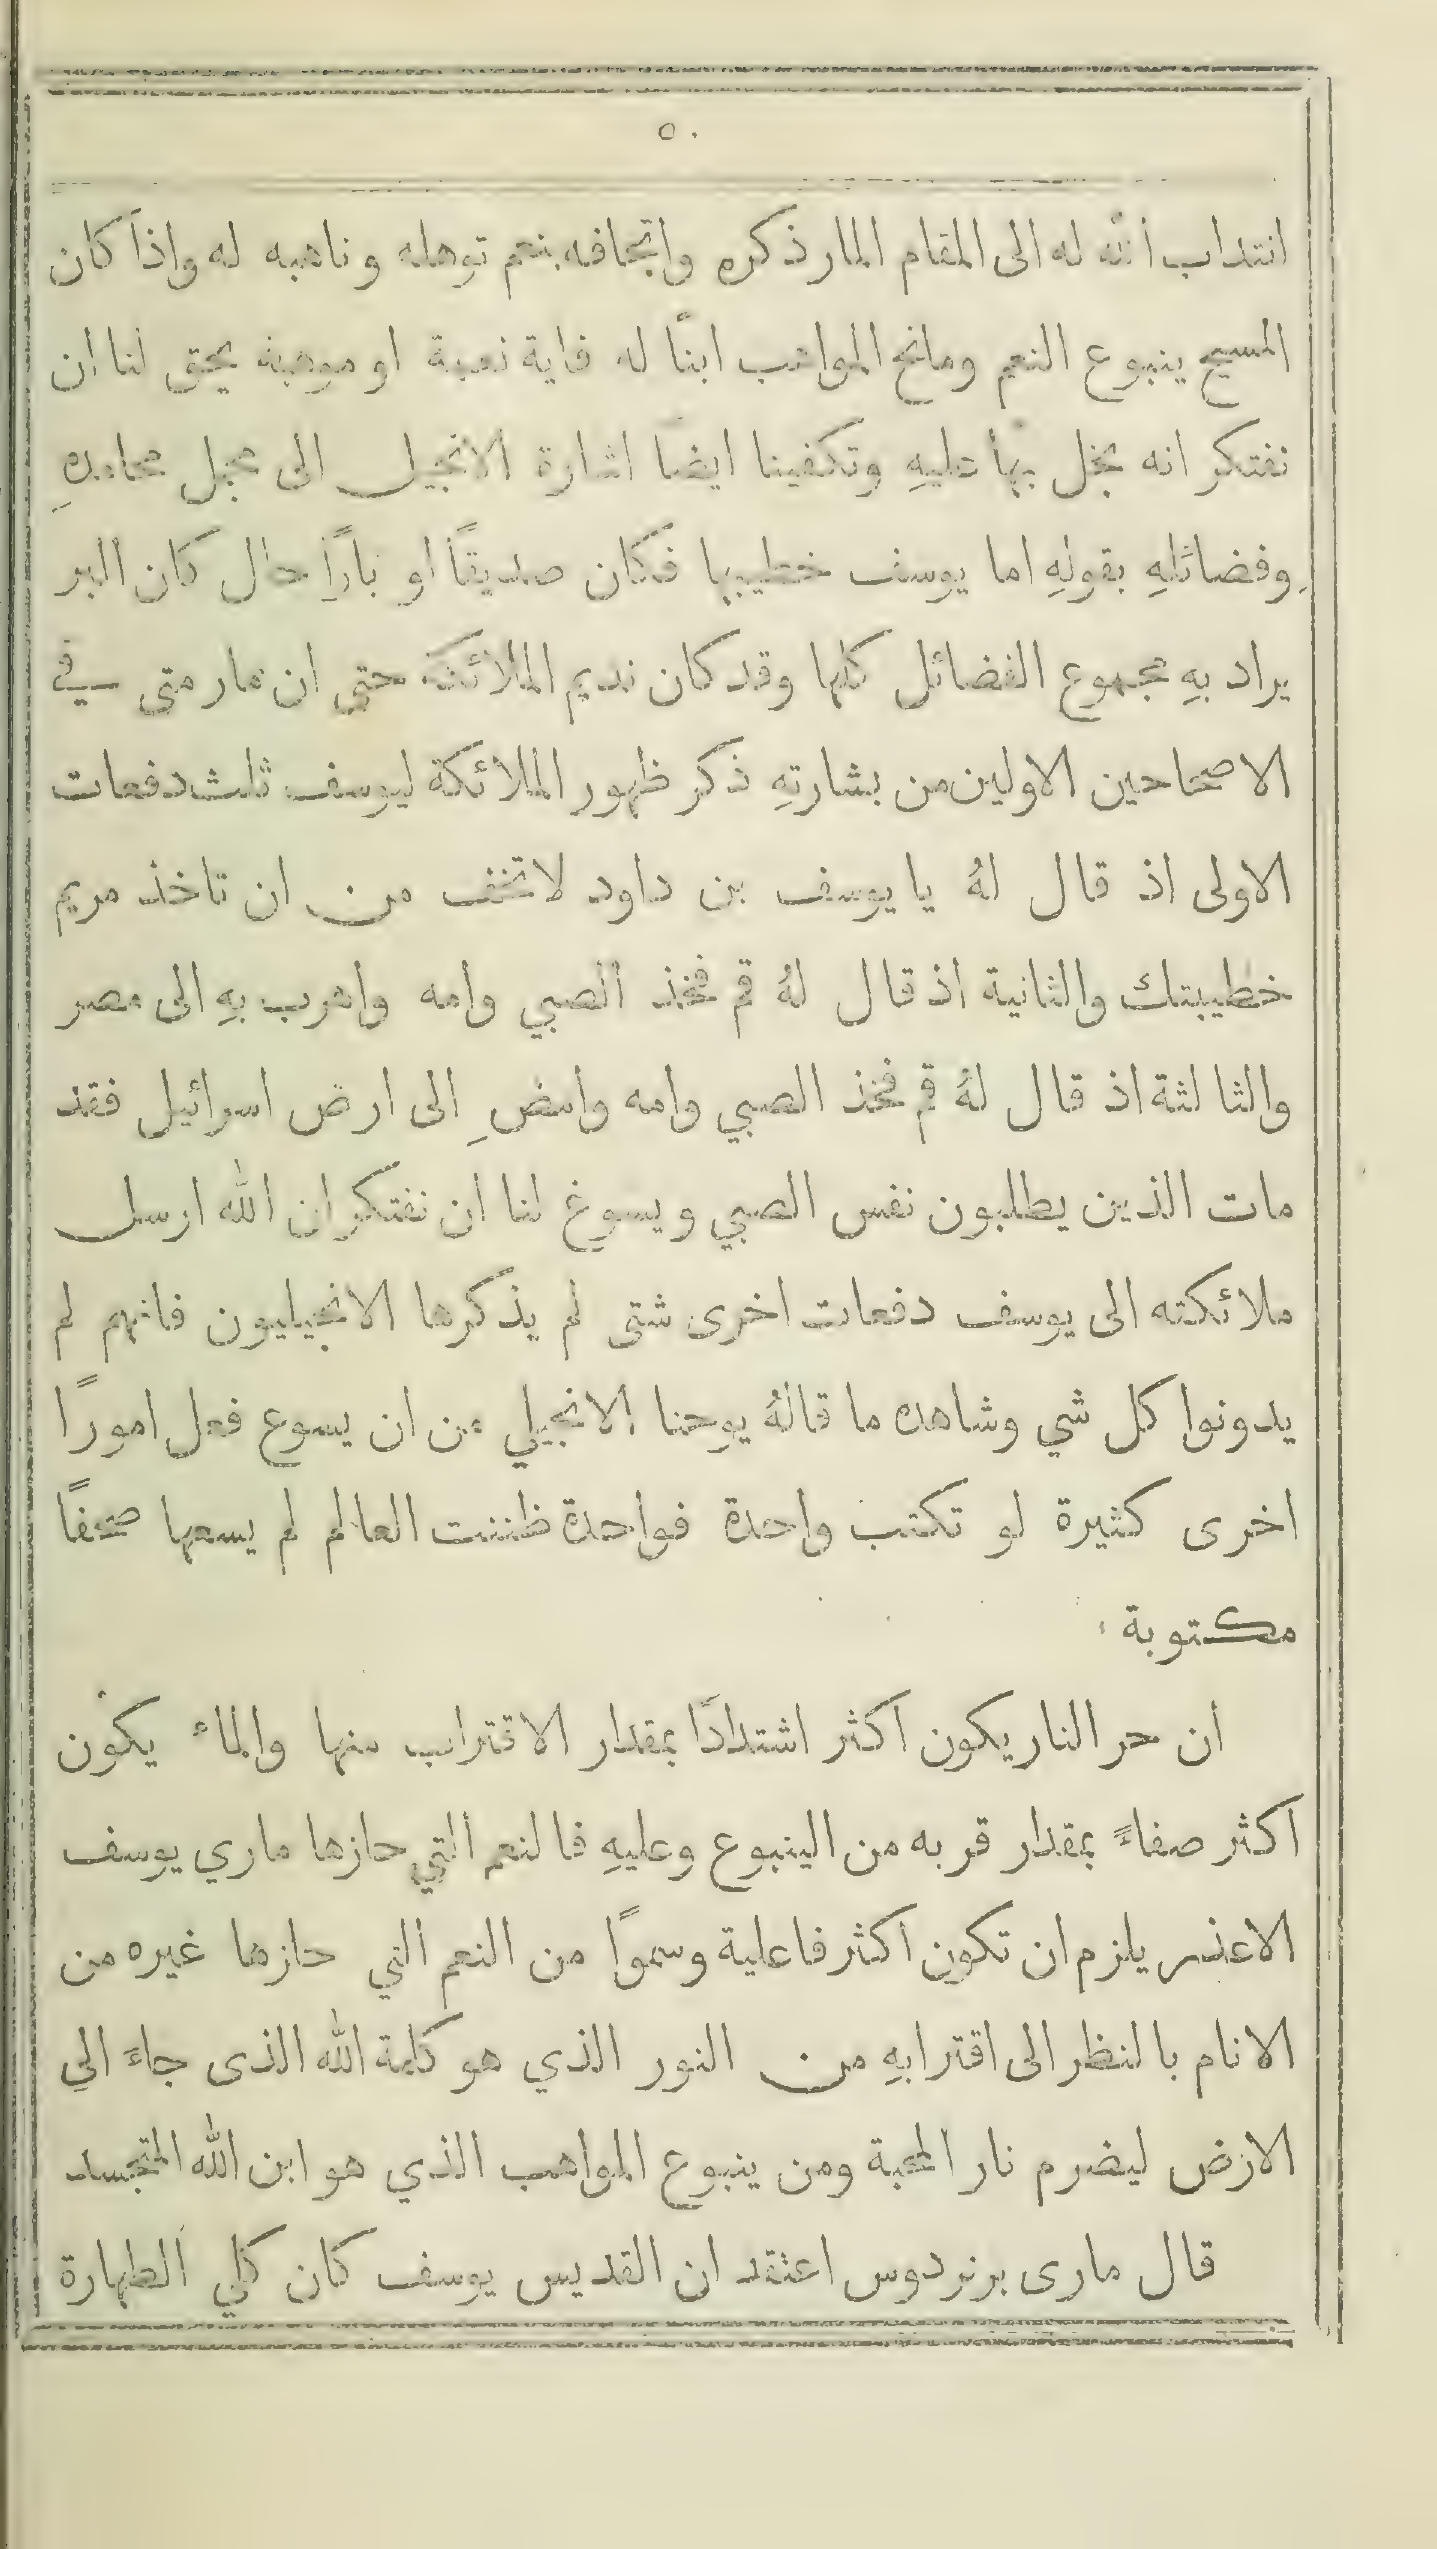 ٥٠
انتداب الله له الى المقام المار ذكره واتحافه بنعم توهله وناهبه له واذا كان
المسيح ينبوع النعم ومانح المواهب ابنًا له فاية نعمة او موهبة يحق لنا ان
نفتكر انه بخل بها عليهِ وتكفينا ايضًا اشارة الانجيل الى مجمل محامدهِ
وفضائلهِ بقولهِ اما يوسف خطيبها فكان صديقًا او بارًا حال كان البر
يراد بهِ مجموع الفضائل كلها وقد كان نديم الملائكة حتى ان مار متى في
الاصحاحين الاولين من بشارتهِ ذكر ظهور الملائكة ليوسف ثلث دفعات
الاولى اذ قال لهُ يا يوسف بن داود لا تخف من ان تاخذ مريم
خطيبتك والثانية اذ قال لهُ قم فخذ الصبي وامه واهرب بهِ الى مصر
والثالثة اذ قال لهُ قم فخذ الصبي وامه وامضِ الى ارض اسرائيل فقد
مات الذين يطلبون نفس الصبي ويسوغ لنا ان نفتكر ان الله ارسل
ملائكته الى يوسف دفعات اخرى شتى لم يذكرها الانجيليون فانهم لم
يدونوا كل شي وشاهده ما قالهُ يوحنا الانجيلي من ان يسوع فعل امورًا
اخرى كثيرة لو تكتب واحدة فواحدة ظننت العالم لم يسعها صحفًا
مكتوبة
ان حر النار يكون اكثر اشتدادًا بمقدار الاقتراب منها والماء يكون
اكثر صفاءً بمقدار قربه من الينبوع وعليهِ فالنعم التي حازها ماري يوسف
يلزم ان تكون اكثر فاعلية وسموًا من النعم التي حازها غيره من
الانام بالنظر الى اقترابهِ من النور الذي هو كلمة الله الذى جاءَ الي
الارض ليضرم نار المحبة ومن ينبوع المواهب الذي هو ابن الله المتجسد
قال مارى برنردوس اعتقد ان القديس يوسف كان كلي الطهارة